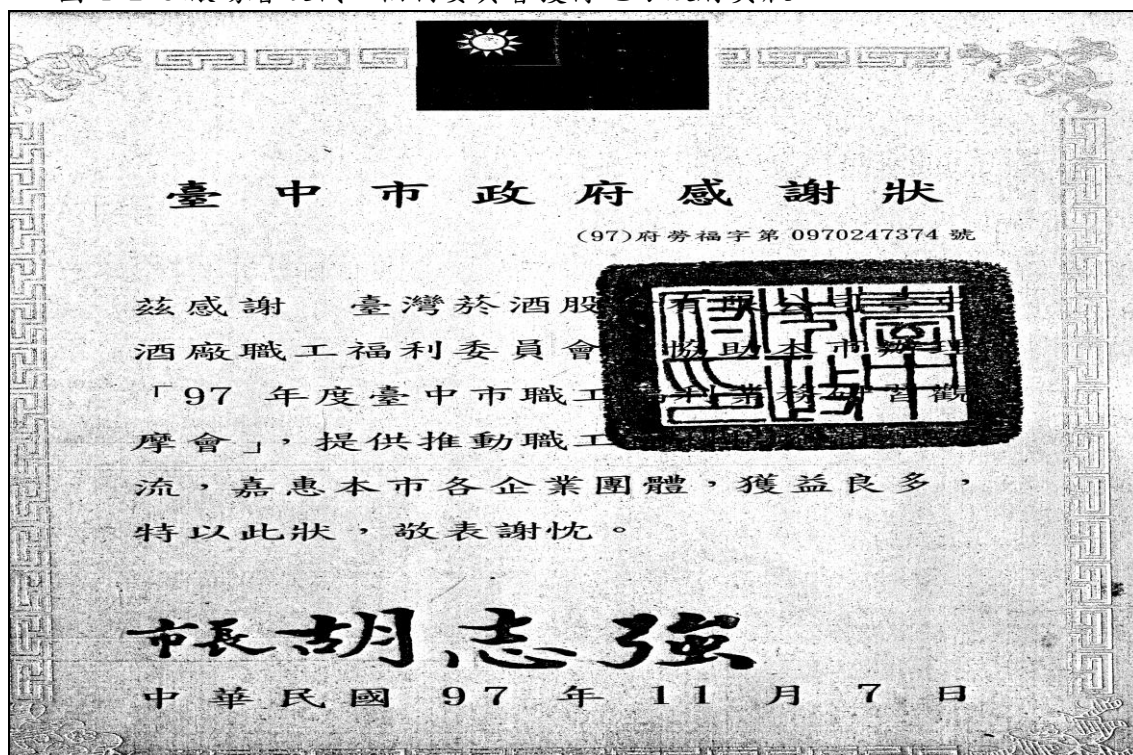 臺中市政府感謝狀
(97)府勞福字第 0970247374 號
茲感謝 臺灣菸酒股 有限公司臺中
酒廠職工福利委員會 協助本市辦理
「97 年度臺中市職工福利業務研習觀
摩會」，提供推動職工
流，嘉惠本市各企業團體，獲益良多，
特以此狀，敬表謝忱。
市長胡志強
中華民國 97 年 11 月 7 日